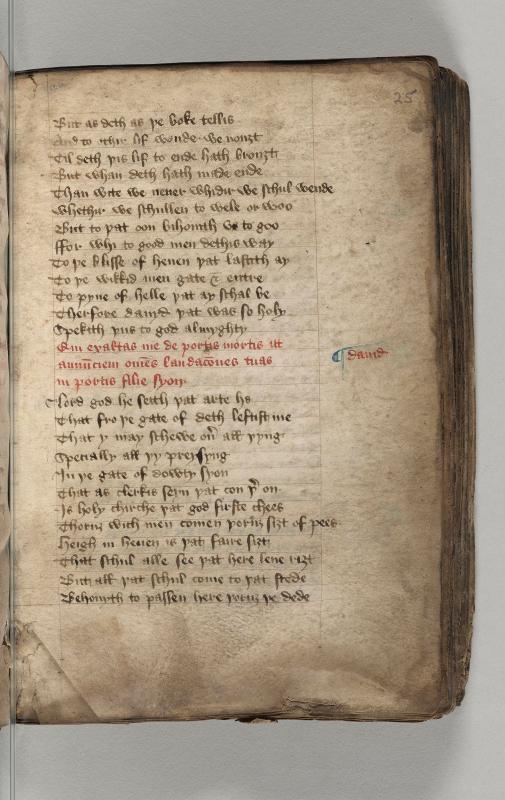 25
But as deth as þe boke tellis
And to othir lif wende we nouȝt
Til deth þis lif to ende hath brouȝt
But whan deth hath made ende
Than wite we neuer whidir we schul wende
Whethir we schullen to wele or woo
But to þat oon bihoueth us to goo
ffor whi to good men deth is way
To þe blisse of heuen þat lastith ay
To þe wikkid men gate & entre
To pyne of helle þat ay schal be
Therfore dauid þat was so holy
Spekith þus to god almyghty
Qui exaltas me de portis mortis ut
annūciem omēs laudacōnes tuas
in portis filie syon
¶ dauid
Lord god he seith þat arte hs
That fro þe gate of deth leftist me
That y may schewe on all þyng
Specially all þy preisyng
In þe gate of dowty syon
That as clerkis seyn þat con þon
Is holy chirche þat god firste chees
Thoruȝ wich men comen þoruȝ siȝt of pees
Heigh in heuen is þat faire siȝt
That schul alle see þat here leue riȝt
But all þat schul come to þat stede
Behoueth to passen here þoruȝ þe dede